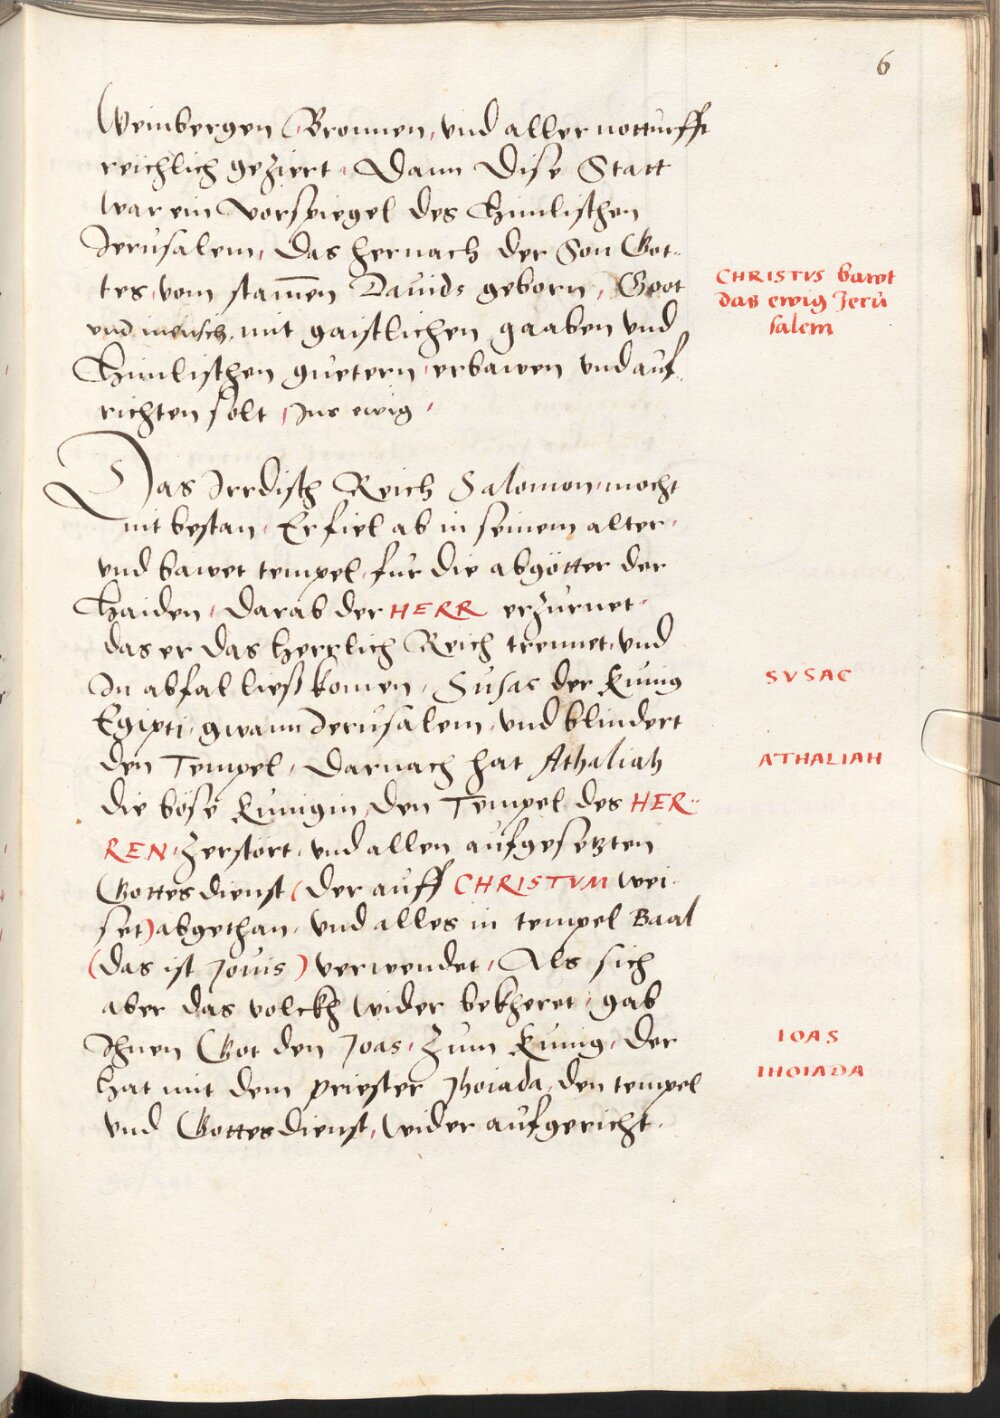 6
Weinbergen, Bronnen, und aller notturfft
reichlich geziert, Dann dise Statt
war ein vorspiegel des Himlischen
Jerusalem, das hernach der Son Got-
tes, vom stam̄en Dauids geborn, Gott
und mensch, mit gaistlichen gaaben und
Himlischen guetern, erbawen und auf-
richten solt, Jns ewig,
CHRISTVS bawet
das ewig Jeru
salem
Das Jrrdisch Reich Salomon, mocht
nit bestan, Er fiel ab in seinem alter,
und bawet tempel, fur die abgötter der
Haiden, darab der HERR erzurnet,
das er das herrlich Reich trennet, und
Jn abfal ließ komen, Susac der Kunig
Egipti, gwann Jerusalem, und blindert
den Tempel, Darnach hat Athaliah
die böse Kunigin, den Tempel des HER-
REN, zerstört, und allen aufgesetzten
Gottesdienst (der auff CHRISTVM wei-
set) abgethan, und alles in tempel Baal
(das ist Jouis) verwendet, Als sich
aber das volckh wider bekheret, gab
Jhnen Got den Joas, zum Kunig, der
hat mit dem priester Jhoiada, den tempel
und Gottesdienst, wider aufgericht.
SVSAC
ATHALIAH
IOAS
IHOIADA